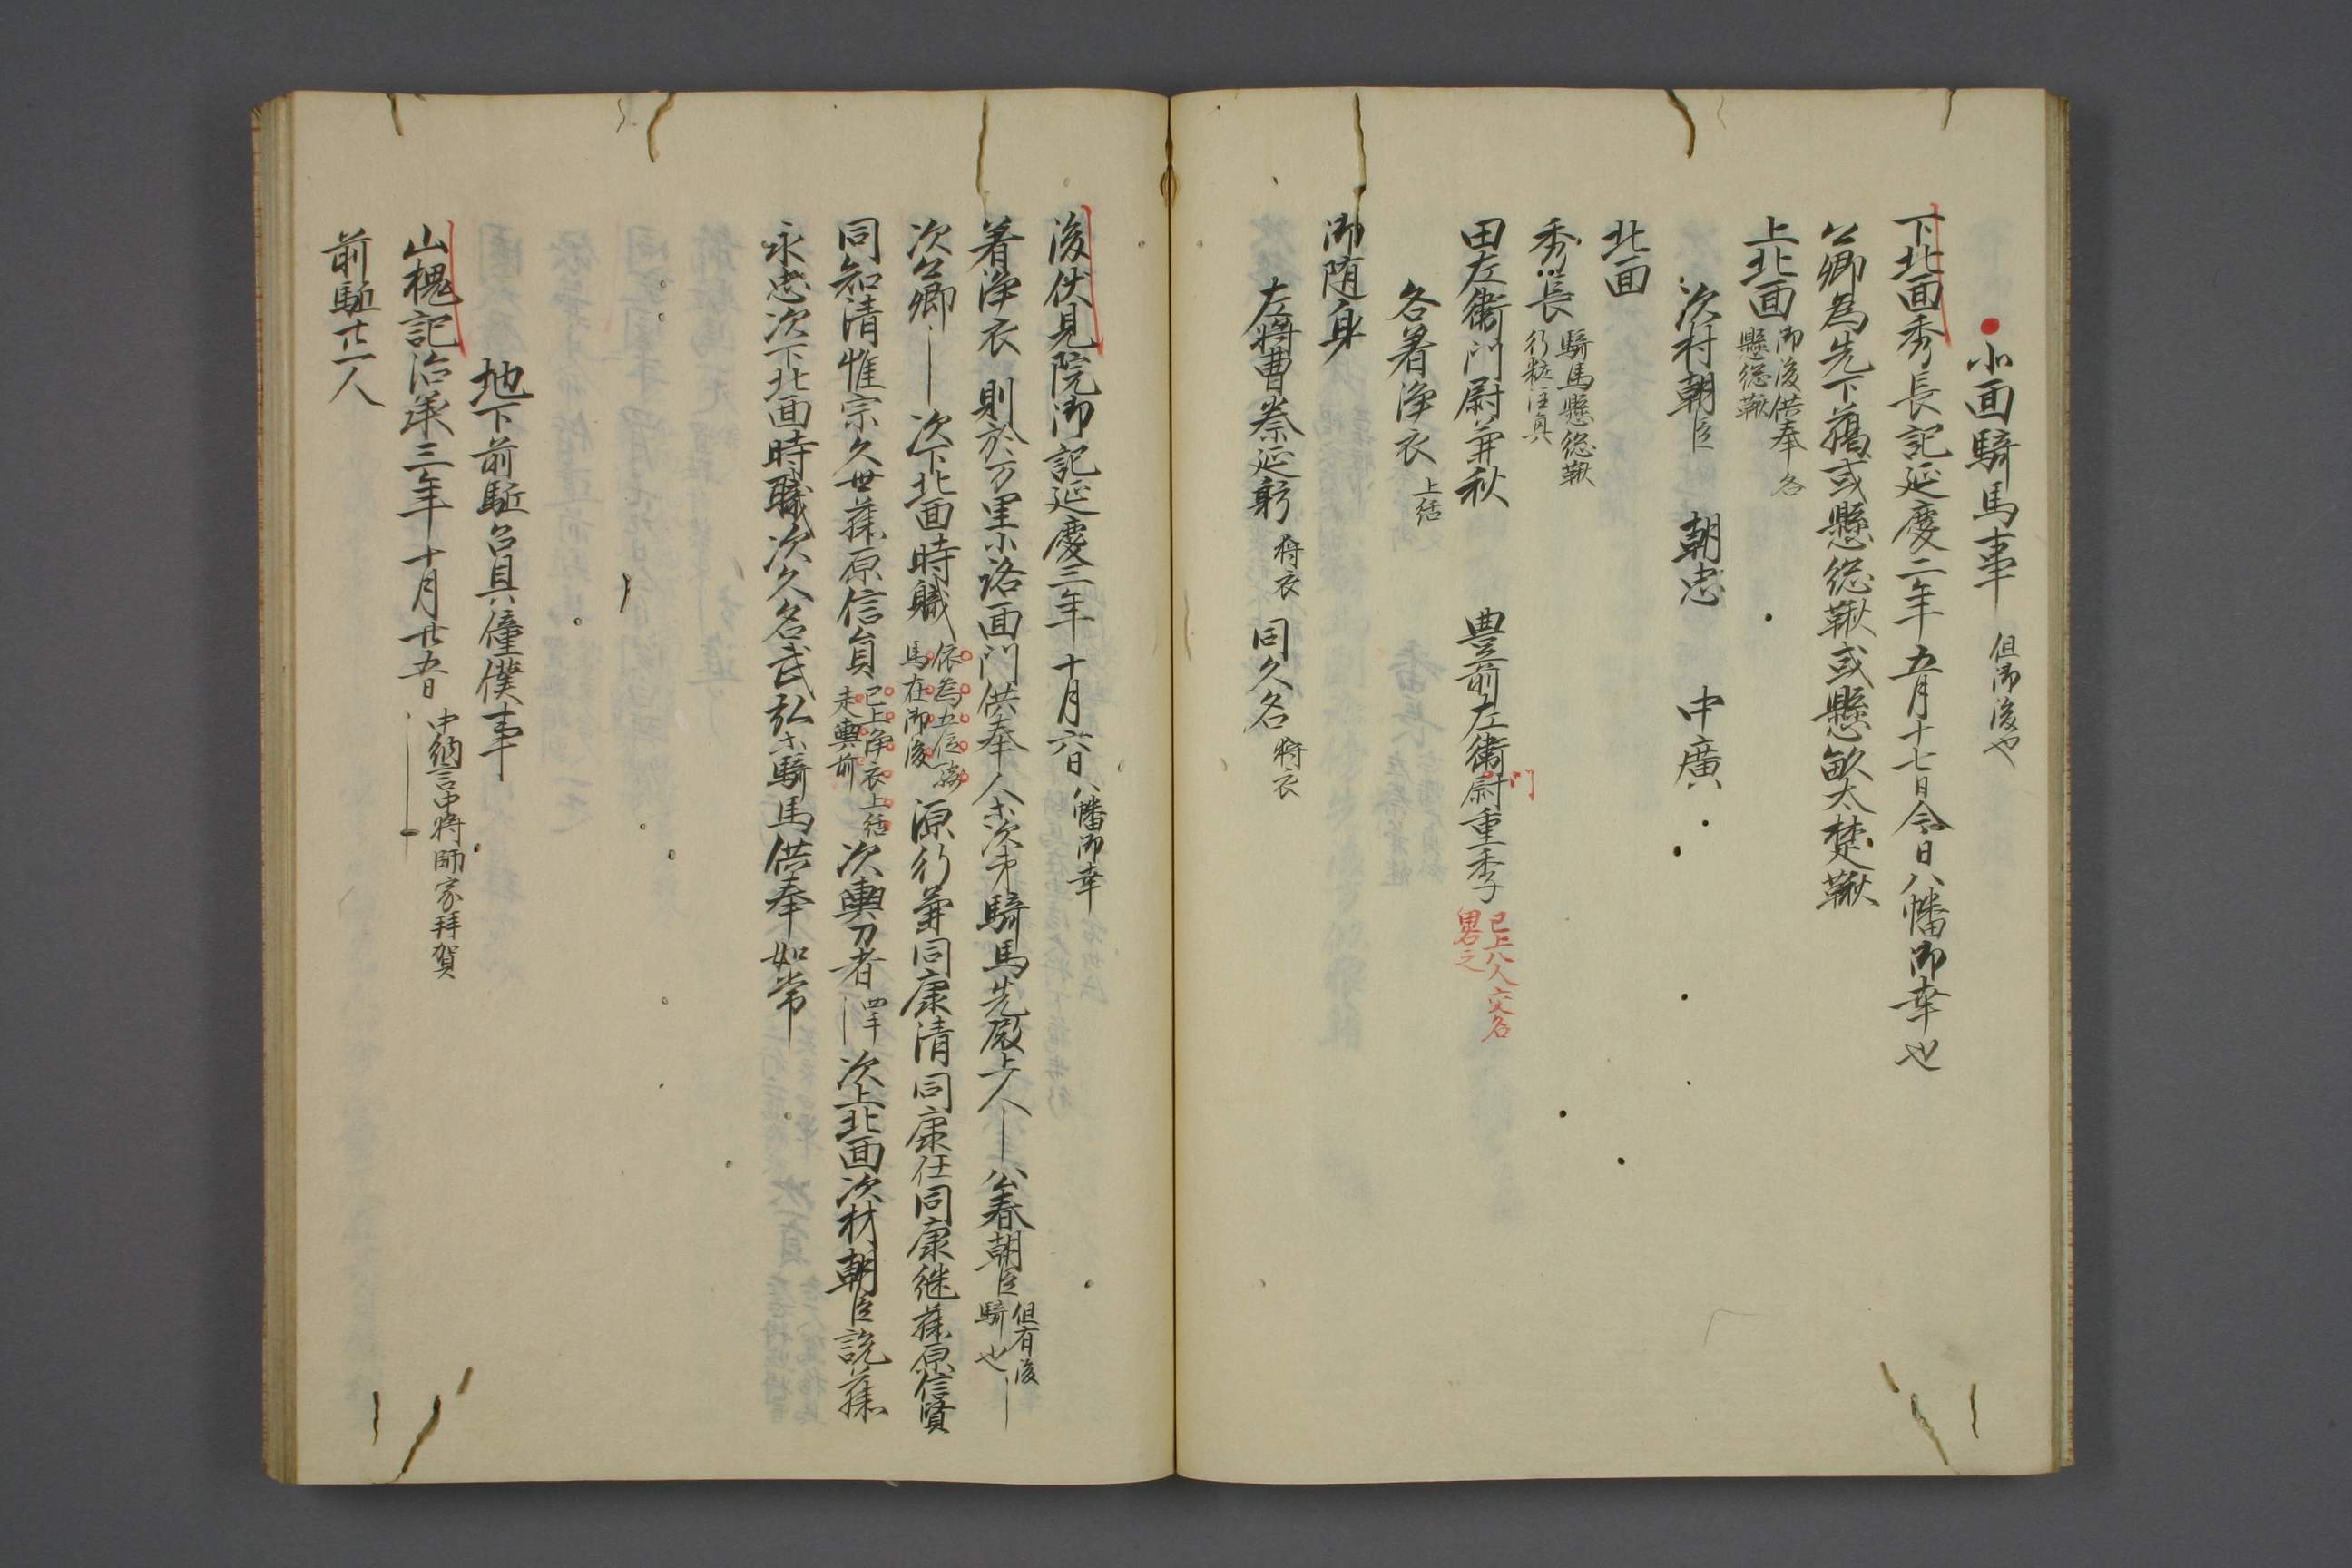 北面騎馬事 但御後也
下北面秀長記延慶二年五月十七日今日八幡御幸也
公卿為先下﨟或懸総鞦或懸畝太楚鞦
上北面 御後供奉各懸総鞦
次村朝臣 朝忠 中廣
北面
秀長 騎馬懸総鞦
田左衛門尉兼秋 豊前左衛門尉重季 已上八人交名畧之
各著浄衣 上括
御随身
左将曹秦延躬 将衣 同久名 将衣
後伏見院御記延慶三年十月六日 八幡御幸
著浄衣 則於万里小路面門供奉人等次第騎馬先殿上人 公春朝臣 但有後騎也
次公卿 次下北面時職 依為五位 馬在御後 源行兼同康清同康任同康継藤原信賢
同知清惟宗久世藤原信員 已上浄衣上括走輿前 次輿刀者 次上北面次村朝臣説藤
永忠次下北面時職次久名武弘等騎馬供奉如常
地下前駈召具僮僕事
山槐記治承三年十月廿五日 中納言中将師家拝賀
前駈廿一人